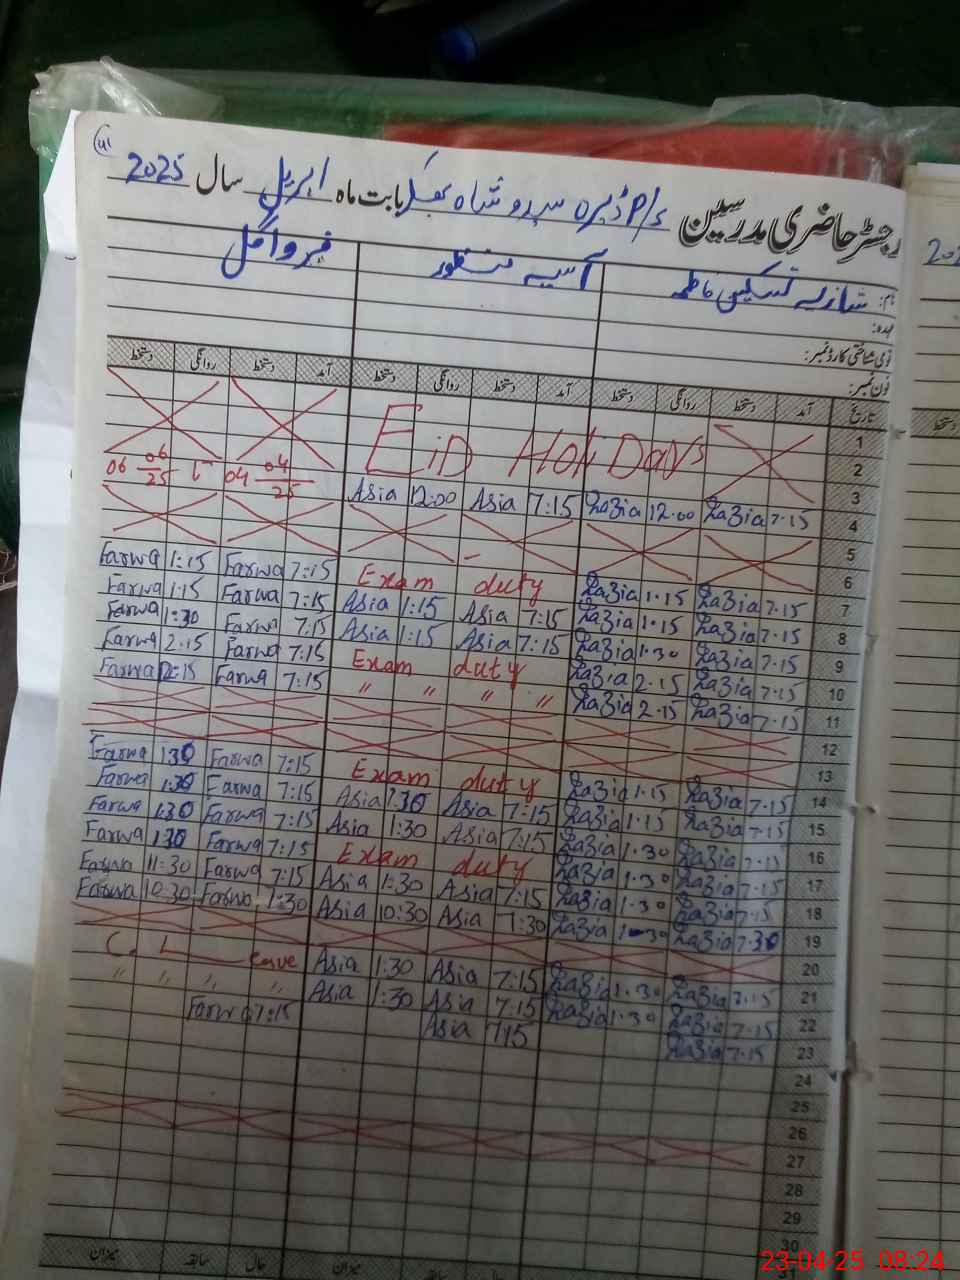 رجسٹر حاضری مدرسین P/s ڈیرہ سیدو شاہ بھکر بابت ماہ اپریل سال 2025
نام: شازیہ تسکین فاطمہ آسیہ منظور فروا گل
عہدہ:
قومی شناختی کارڈ نمبر:
فون نمبر:
تاریخ آمد دستخط روانگی دستخط آمد دستخط روانگی دستخط آمد دستخط روانگی دستخط
1
EiD Holi Days 2
06 06/25 تا 04 04/25 3
Asia 12:00 Asia 7:15 Razia 12.00 Razia 7.15 4
5
6
Farwa 1:15 Farwa 7:15 Exam duty Razia 1.15 Razia 7.15 7
Farwa 1:15 Farwa 7:15 Asia 1:15 Asia 7:15 Razia 1.15 Razia 7.15 8
Farwa 1:30 Farwa 7:15 Asia 1:15 Asia 7:15 Razia 1.30 Razia 7.15 9
Farwa 2.15 Farwa 7:15 Exam duty Razia 2.15 Razia 7.15 10
Farwa 12:15 Farwa 7:15 " " " " Razia 2.15 Razia 7.15 11
12
13
Farwa 1:30 Farwa 7:15 Exam duty Razia 1.15 Razia 7.15 14
Farwa 1:30 Farwa 7:15 Asia 1:30 Asia 7:15 Razia 1.15 Razia 7.15 15
Farwa 1:30 Farwa 7:15 Asia 1:30 Asia 7:15 Razia 1.30 Razia 7.15 16
Farwa 1:30 Farwa 7:15 Exam duty Razia 1.30 Razia 7.15 17
Farwa 11:30 Farwa 7:15 Asia 1:30 Asia 7:15 Razia 1.30 Razia 7.15 18
Farwa 10:30 Farwa 7:30 Asia 10:30 Asia 7:30 Razia Razia 7.30 19
20
C. L eave Asia 1:30 Asia 7:15 Razia 1.30 Razia 7.15 21
" " " " Asia 1:30 Asia 7:15 Razia 1.30 Razia 7.15 22
Farwa 7:15 Asia 715 Razia 7.15 23
24
25
26
27
28
29
30
31
میزان سابقہ حال میزان
23-04-25 08:24